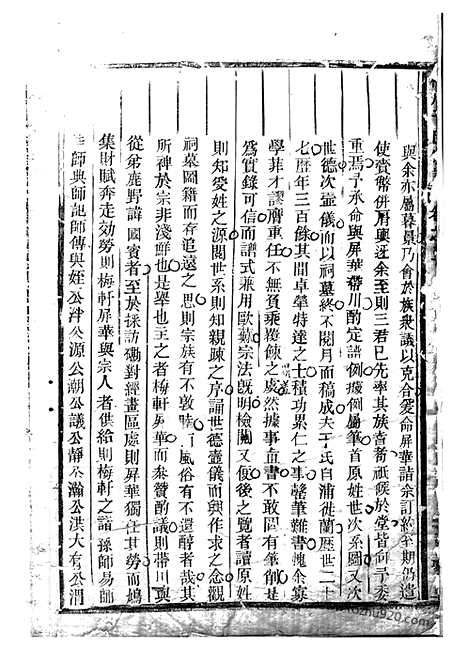 與余亦屬暮景乃會於族衆議以克合爰命屏華請余訂約至期仍遣
使賫幣併厝輿近余至則三君巳先率其族耆喬祇候於堂皆仰予委
重焉予承命與屏華帶川酌定譜例據例屬筆首原姓世次系圖又次
世德次壼儀而以祠墓終不閱月而稿成夫于氏自浦徙蘭歷世二十
七歷年三百餘其間卓犖特達之士積功累仁之事罄筆難書愧余寡
學菲才謬膺重任不無負乘覆餗之虞然據事直書不敢間有筆削
爲實錄可信而譜式兼用歐蘇宗法旣明檢閱又便後之覽者讀原姓
則知受姓之源閱世系則知親疎之序誦世德壼儀而興作求之念觀
祠墓圖籍而存追遠之思則宗族有不敦睦風俗有不還醇者哉其
所神於宗非淺鮮也是舉也主之者梅軒屏華而參贊酌議則帶川與
從弟鹿野諱國賓者至於採訪勤對經畫區處則屏華獨任其勞而鳩
集財賦奔走効勞則梅軒屏華與宗人者供給則梅軒之諸孫師易師
師典師記師傳與姪公泮公源公潮公議公靜公瀚公洪大有公渭